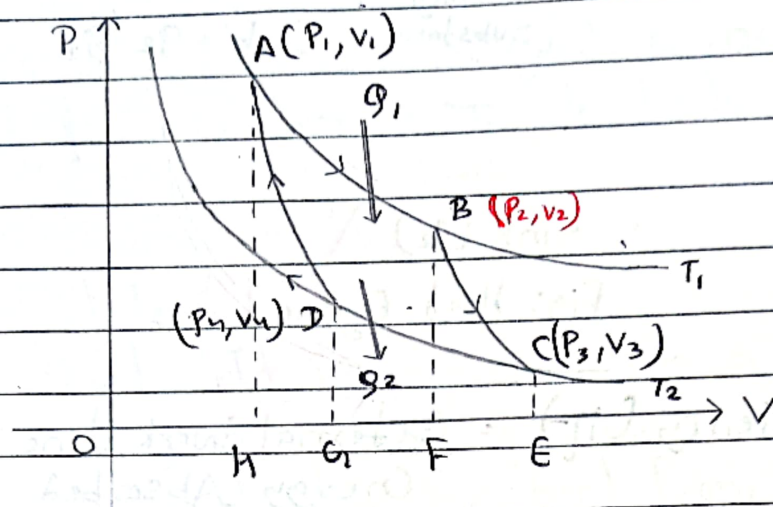 P
A(P₁, V₁)
Q₁
B (P₂, V₂)
T₁
(P₄, V₄) D
C(P₃, V₃)
Q₂
T₂
V
O
H G F E